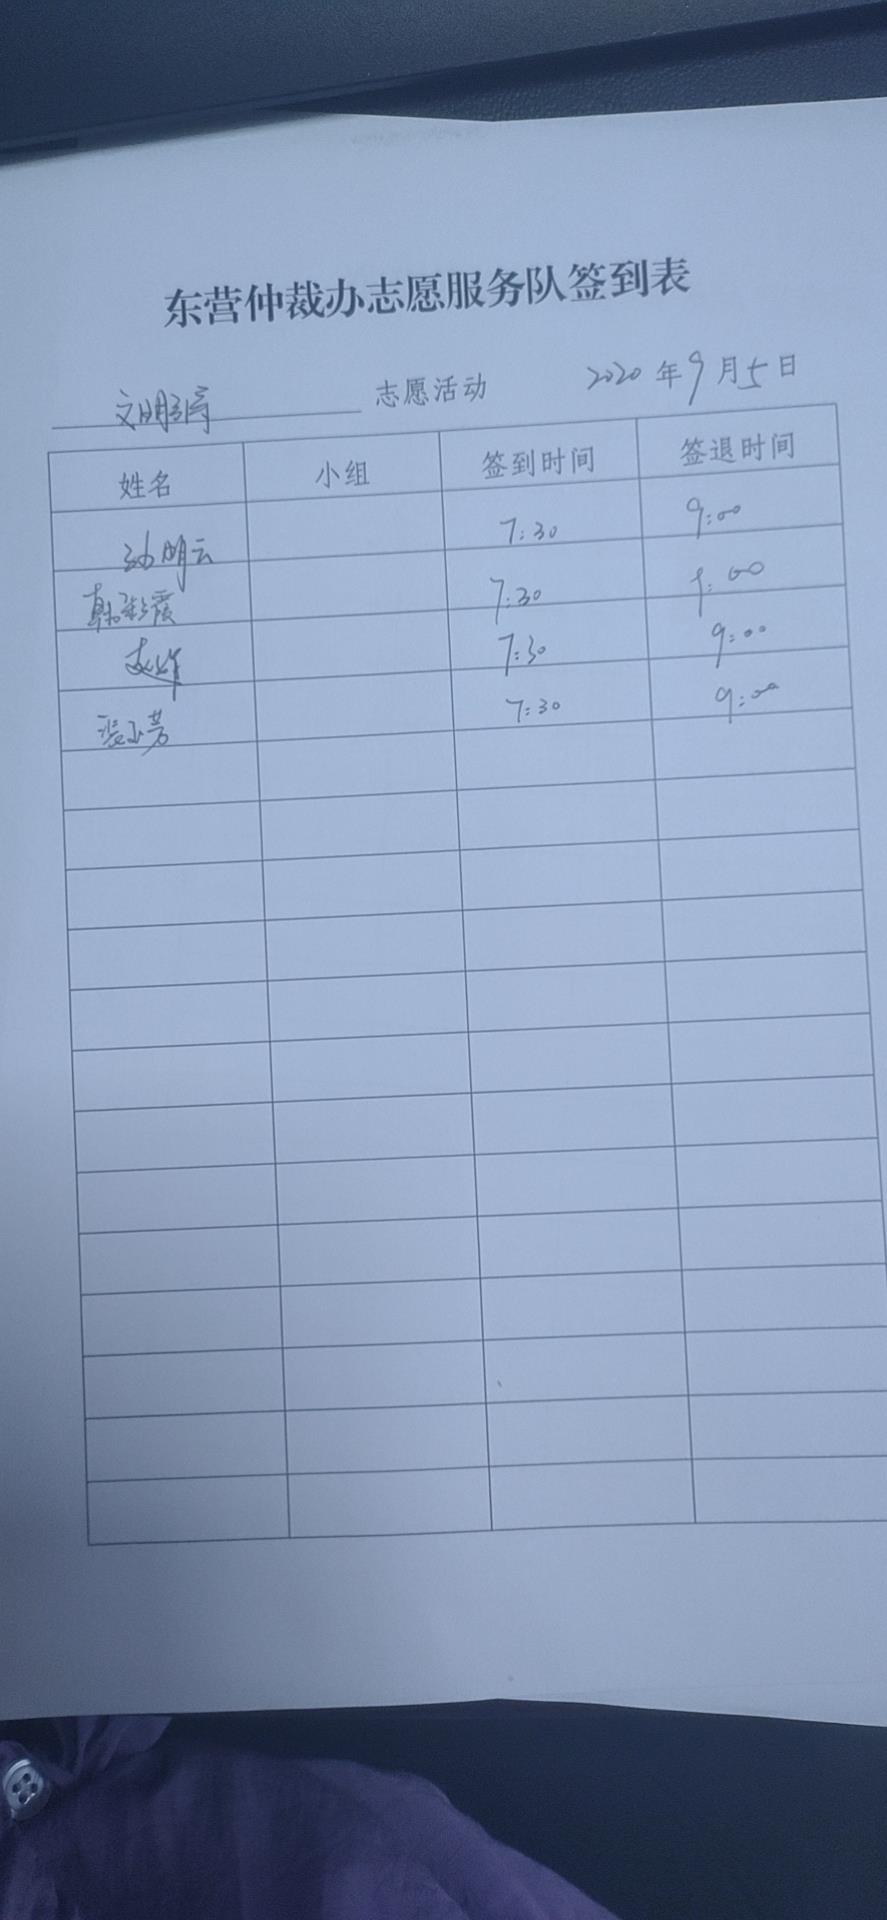 东营仲裁办志愿服务队签到表
文明引导 志愿活动 2020年9月5日
姓名 小组 签到时间 签退时间
孙明云 7:30 9:00
韩彩霞 7:30 9:00
7:30 9:00
7:30 9:00